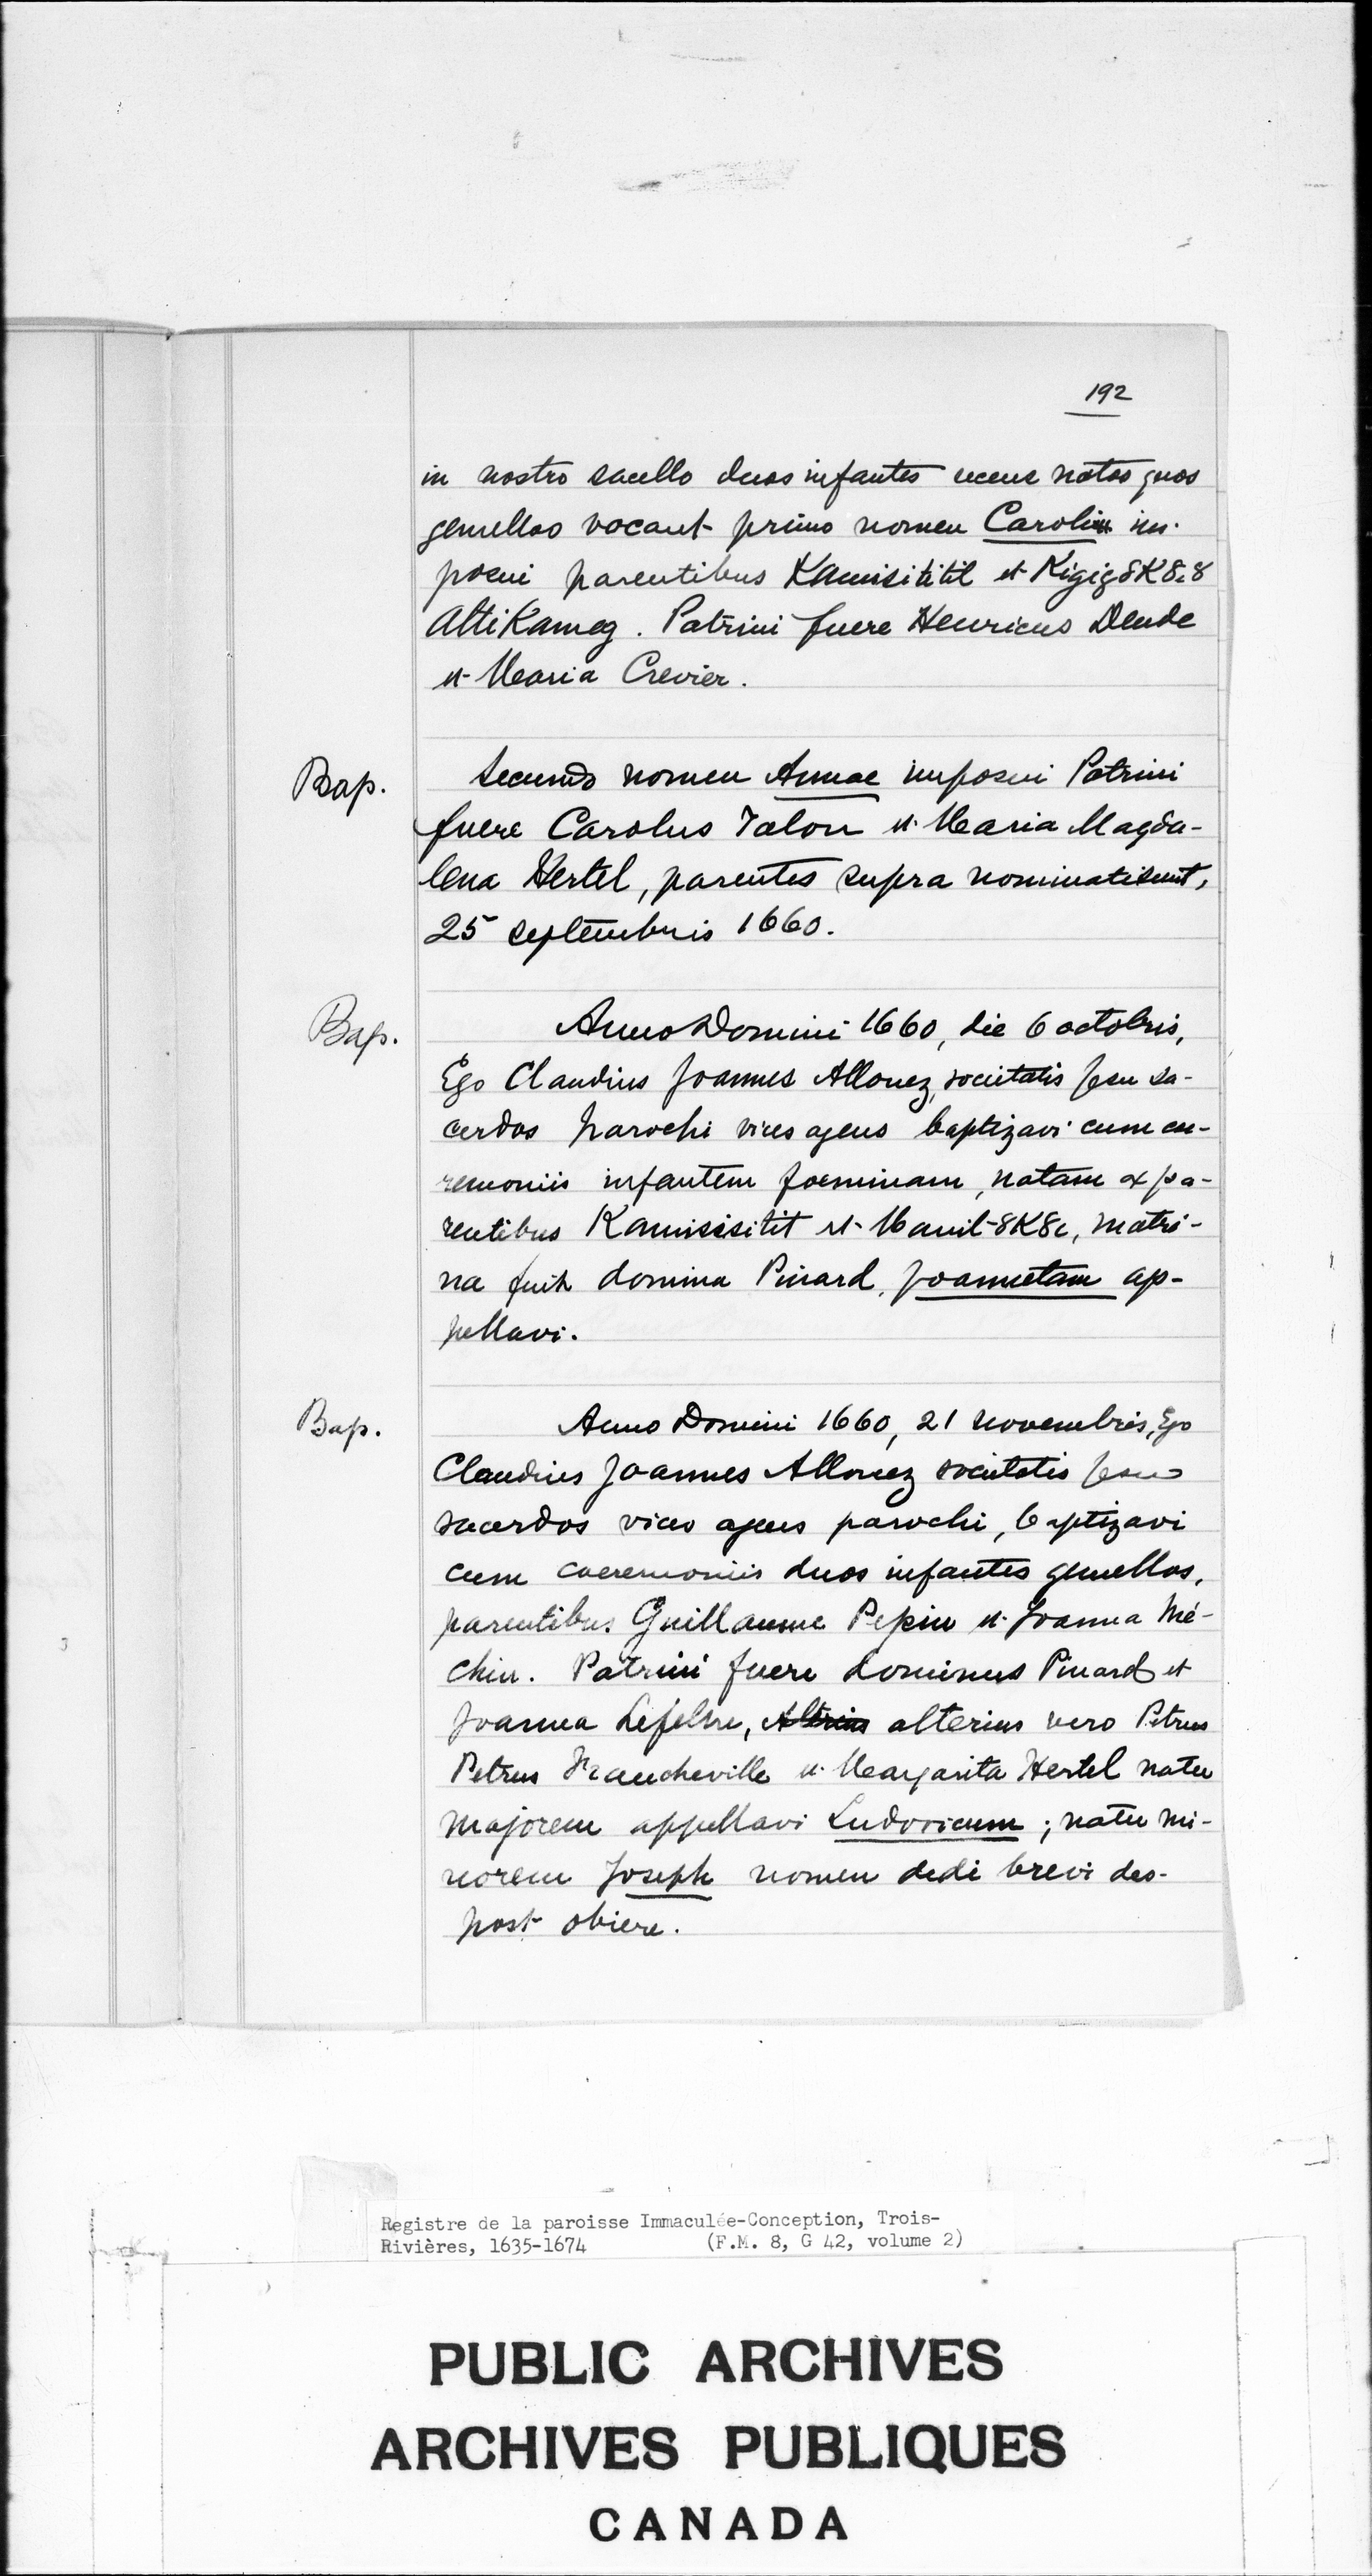 192
in nostro sacello duos infantes recens natos quos
gemellos vocant primo nomen Caroli im-
posui parentibus Kamisititit et Kigig8K8.8
AttiKameg. Patrini fuere Henricus Dende
et Maria Crevier.
Bap. Secundo nomen Annae imposui Patrini
fuere Carolus Talon et Maria Magda-
lena Hertel, parentes supra nominati sunt,
25 septembris 1660.
Bap. Anno Domini 1660, die 6 octobris,
Ego Claudius Joannes Allouez, societatis Jesu sa-
cerdos parochi vices agens baptizavi cum cae-
remoniis infantem foeminam, natam ex pa-
rentibus Kamisisitit et Manit-8K8e, matri-
na fuit domina Pinard, Joannetam ap-
pellavi.
Bap. Anno Domini 1660, 21 novembris, Ego
Claudius Joannes Allouez societatis Jesu
sacerdos vices agens parochi, baptizavi
cum caeremoniis duos infantes gemellos,
parentibus Guillaume Pepin et Joanna Mé-
chin. Patrini fuere dominus Pinard et
Joanna Lefebre, alterius vero Petrus
Petrus Francheville et Margarita Hertel natu
majorem appellavi Ludovicum; natu mi-
norem Joseph nomen dedi brevi des-
post obiere.
Registre de la paroisse Immaculée-Conception, Trois-
Rivières, 1635-1674 (F.M. 8, G 42, volume 2)
PUBLIC ARCHIVES
ARCHIVES PUBLIQUES
CANADA